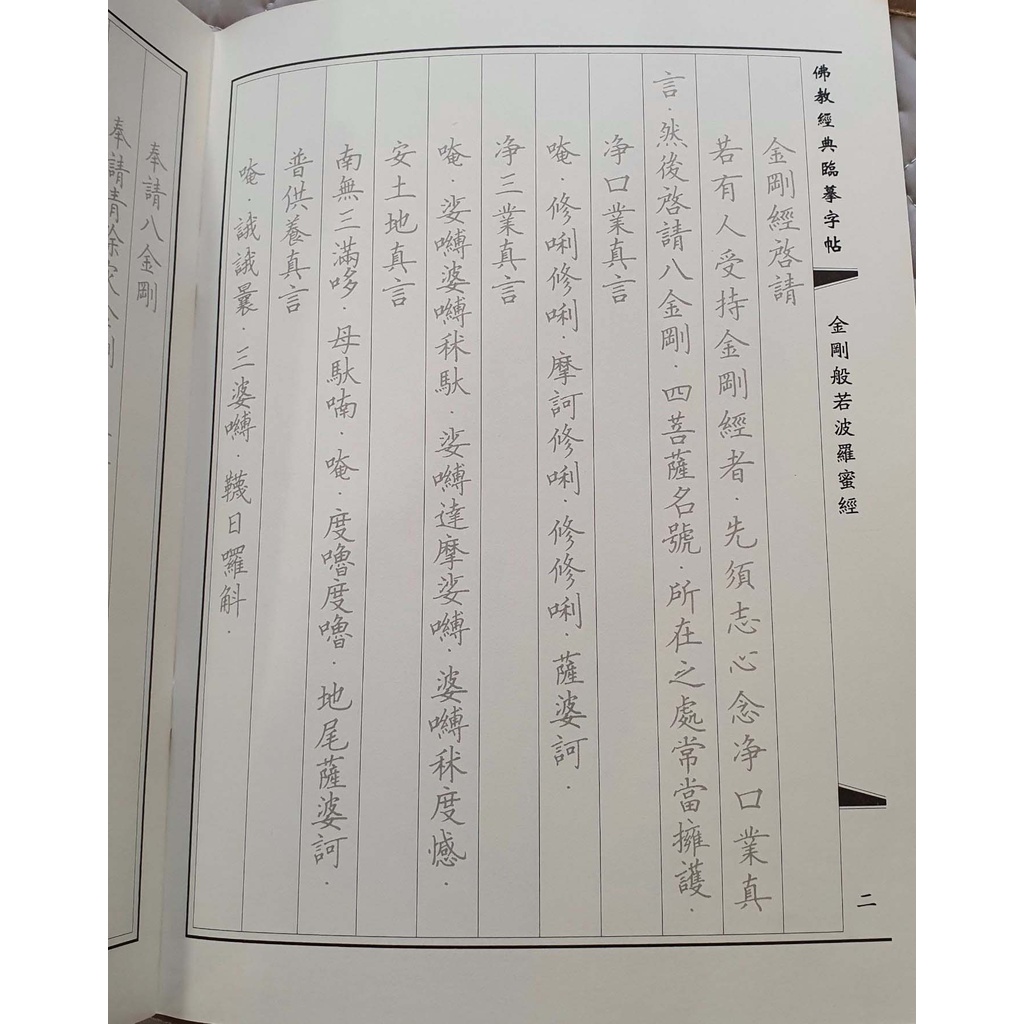 佛教經典臨摹字帖
金剛般若波羅蜜經
二
金剛經啓請
若有人受持金剛經者．先須志心念净口業真
言．然後啓請八金剛．四菩薩名號．所在之處常當擁護．
净口業真言
唵．修唎修唎．摩訶修唎．修修唎．薩婆訶．
净三業真言
唵．娑嚩婆嚩秫馱．娑嚩達摩娑嚩．婆嚩秫度憾．
安土地真言
南無三滿哆．母馱喃．唵．度嚕度嚕．地尾薩婆訶．
普供養真言
唵．誐誐曩．三婆嚩．韈日囉斛．
奉請八金剛
奉請青除災金剛